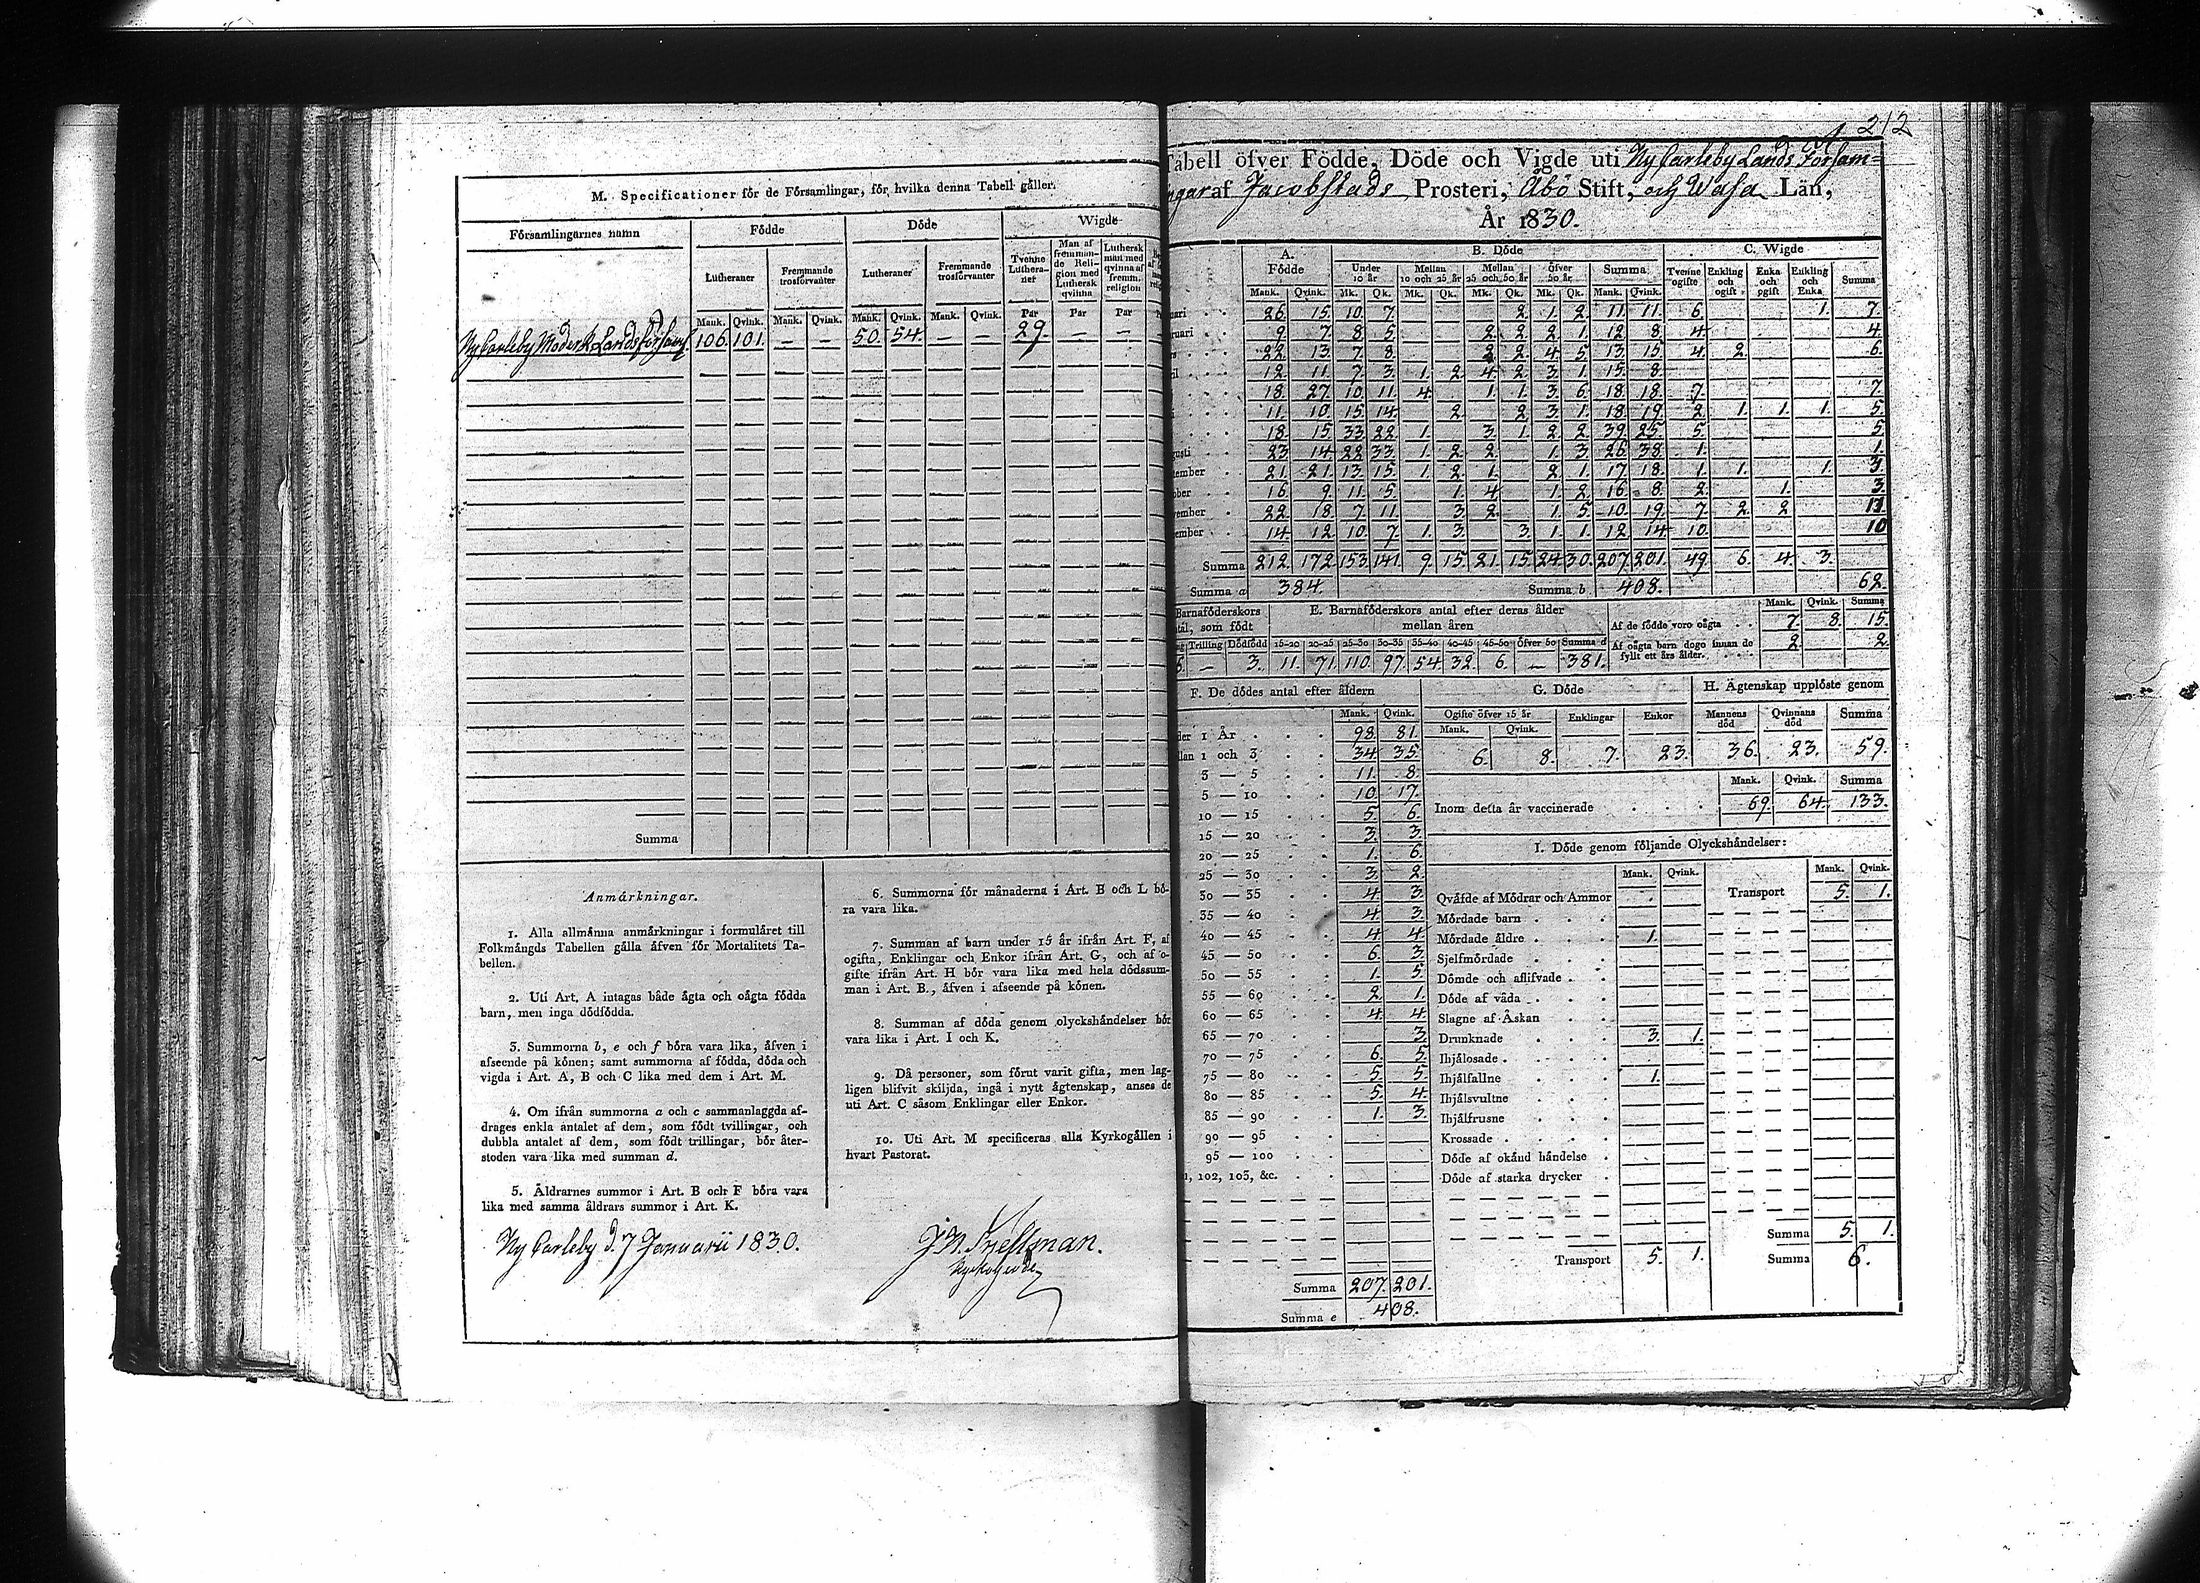 M. Specificationer för de Församlingar, för hvilka denna Tabell gäller.
Församlingarnes namn Födde Döde Wigde
Lutheraner Fremmande trosförvanter Lutheraner Fremmande trosförvanter Tvenne Lutheraner Man af fremmande Religion med Luthersk qvinna Luthersk man med qvinna af fremm. religion
Mank. Qvink. Mank. Qvink. Mank. Qvink. Mank. Qvink. Par Par Par
Ny Carleby Moderk. Landsförsaml. 106. 101. — — 50. 54. — — 29. — —
Summa
Anmärkningar.
1. Alla allmänna anmärkningar i formuläret till
Folkmängds Tabellen gälla äfven för Mortalitets Ta-
bellen.
2. Uti Art. A intagas både ägta och oägta födda
barn, men inga dödfödda.
3. Summorna b, e och f böra vara lika, äfven i
afseende på könen; samt summorna af födda, döda och
vigda i Art. A, B och C lika med dem i Art. M.
4. Om ifrån summorna a och c sammanlaggda af-
drages enkla antalet af dem, som födt tvillingar, och
dubbla antalet af dem, som födt trillingar, bör åter-
stoden vara lika med summan d.
5. Åldrarnes summor i Art. B och F böra vara
lika med samma åldrars summor i Art. K.
6. Summorna för månaderna i Art. B och L bö-
ra vara lika.
7. Summan af barn under 15 år ifrån Art. F, af
ogifta, Enklingar och Enkor ifrån Art. G, och af o-
gifte ifrån Art. H bör vara lika med hela dödssum-
man i Art. B., äfven i afseende på könen.
8. Summan af döda genom olyckshändelser bör
vara lika i Art. I och K.
9. Då personer, som förut varit gifta, men lag-
ligen blifvit skiljda, ingå i nytt ägtenskap, anses de
uti Art. C såsom Enklingar eller Enkor.
10. Uti Art. M specificeras alla Kyrkogällen i
hvart Pastorat.
Ny Carleby d. 7 Januarii 1830.
212
Tabell öfver Födde, Döde och Vigde uti Ny Carleby Lands Församling-
ar af Jacobstads Prosteri, Åbo Stift, och Wasa Län,
År 1830.
A. Födde B. Döde C. Wigde
Under 10 år Mellan 10 och 25 år Mellan 25 och 50 år Öfver 50 år Summa Tvenne ogifte Enkling och ogift Enka och ogift Enkling och Enka Summa
Mank. Qvink. Mk. Qk. Mk. Qk. Mk. Qk. Mk. Qk. Mank. Qvink.
uari 26. 15. 10. 7. 2. 1. 2. 11. 11. 6. 1. 7.
ruari 9. 7. 8. 5. 2. 2. 2. 1. 12. 8. 4. 4.
rs 22. 13. 7. 8. 2. 2. 4. 5. 13. 15. 4. 2. 6.
ril 12. 11. 7. 3. 1. 2. 4. 2. 3. 1. 15. 8.
18. 27. 10. 11. 4. 1. 1. 3. 6. 18. 18. 7. 7.
11. 10. 15. 14. 2. 2. 3. 1. 18. 19. 2. 1. 1. 1. 5.
18. 15. 33. 22. 1. 3. 1. 2. 2. 39. 25. 5. 5.
gusti 23. 14. 22. 33. 1. 2. 2. 1. 3. 26. 38. 1. 1.
tember 21. 21. 13. 15. 1. 2. 1. 2. 1. 17. 18. 1. 1. 1. 3.
ober 16. 9. 11. 5. 1. 4. 1. 2. 16. 8. 2. 1. 3.
vember 22. 18. 7. 11. 3. 2. 1. 5. 10. 19. 7. 2. 2. 11
ember 14. 12. 10. 7. 1. 3. 3. 1. 1. 12. 14. 10. 10
Summa 212. 172. 153. 141. 9. 15. 21. 15. 24. 30. 207. 201. 49. 6. 4. 3.
Summa a 384. Summa b 408. 62
Barnaföderskors
tal, som födt
Trilling Dödfödd
— 3.
E. Barnaföderskors antal efter deras ålder
mellan åren
15-20 20-25 25-30 30-35 35-40 40-45 45-50 Öfver 50 Summa d
11. 71. 110. 97. 54. 32. 6. — 381.
Mank. Qvink. Summa
Af de födde voro oägta 7. 8. 15.
Af oägta barn dogo innan de
fyllt ett års ålder. 2. 2.
F. De dödes antal efter åldern
Mank. Qvink.
der 1 År 98. 81.
llan 1 och 3 34. 35.
3 — 5 11. 8.
5 — 10 10. 17.
10 — 15 5. 6.
15 — 20 3. 3.
20 — 25 1. 6.
25 — 30 3. 2.
30 — 35 4. 3.
35 — 40 4. 3.
40 — 45 4. 4.
45 — 50 6. 3.
50 — 55 1. 5.
55 — 60 2. 1.
60 — 65 4. 4.
65 — 70 3.
70 — 75 6. 5.
75 — 80 5. 5.
80 — 85 5. 4.
85 — 90 1. 3.
90 — 95
95 — 100
102, 103, &c.
Summa 207. 201.
Summa e 408.
G. Döde
Ogifte öfver 15 år Enklingar Enkor
Mank. Qvink.
6. 8. 7. 23.
H. Ägtenskap upplöste genom
Mannens död Qvinnans död Summa
36. 23. 59.
Mank. Qvink. Summa
Inom detta år vaccinerade 69. 64. 133.
I. Döde genom följande Olyckshändelser:
Mank. Qvink. Mank. Qvink.
Qväfde af Mödrar och Ammor Transport 5. 1.
Mördade barn
Mördade äldre 1.
Sjelfmördade
Dömde och aflifvade
Döde af våda
Slagne af Åskan
Drunknade 3. 1.
Ihjälosade
Ihjälfallne 1.
Ihjälsvultne
Ihjälfrusne
Krossade
Döde af okänd händelse
Döde af starka drycker
Summa 5. 1.
Transport 5. 1. Summa 6.